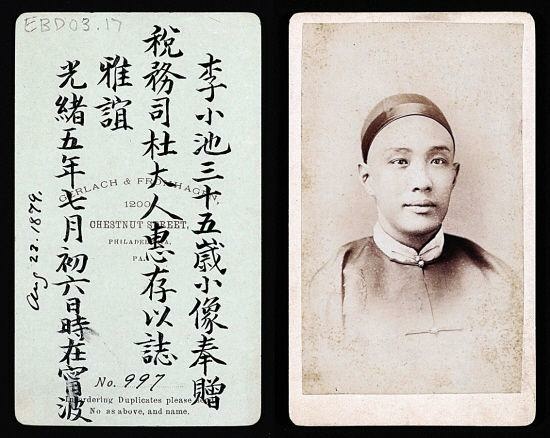 EBD03.17
李小池三十五歲小像奉贈
稅務司杜大人惠存以誌
雅誼
光緒五年七月初六日時在甯波
Aug 23. 1879.
GERLACH & FROMHAGEN,
1200
CHESTNUT STREET,
PHILADELPHIA,
PA.
No. 997
In ordering Duplicates please send
No as above, and name.